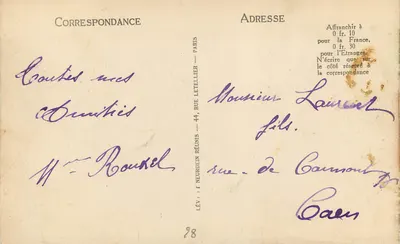 CORRESPONDANCE
Toutes mes
Amitiés
Mme Roussel
LÉVY ET NEURDEIN RÉUNIS — 44, RUE LETELLIER — PARIS
ADRESSE
Affranchir à
0 fr. 10
pour la France.
0 fr. 30
pour l'Etranger.
N'écrire que sur
le côté réservé à
la correspondance
Monsieur Laurent
fils.
rue de Caumont
Caen
28